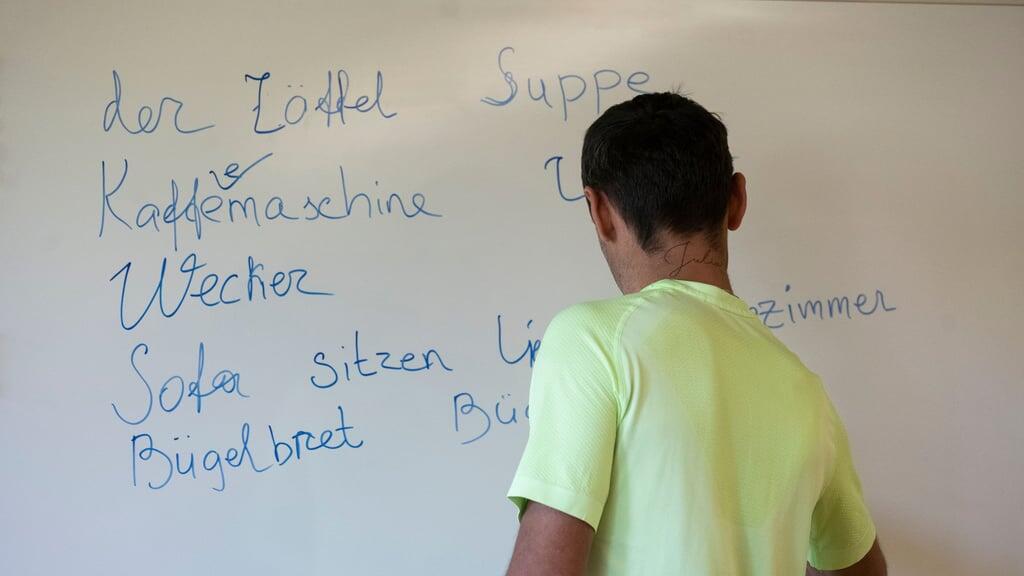 der Löffel Suppe
Kaffeemaschine
Wecker
Sofa sitzen zimmer
Bügelbret Bü